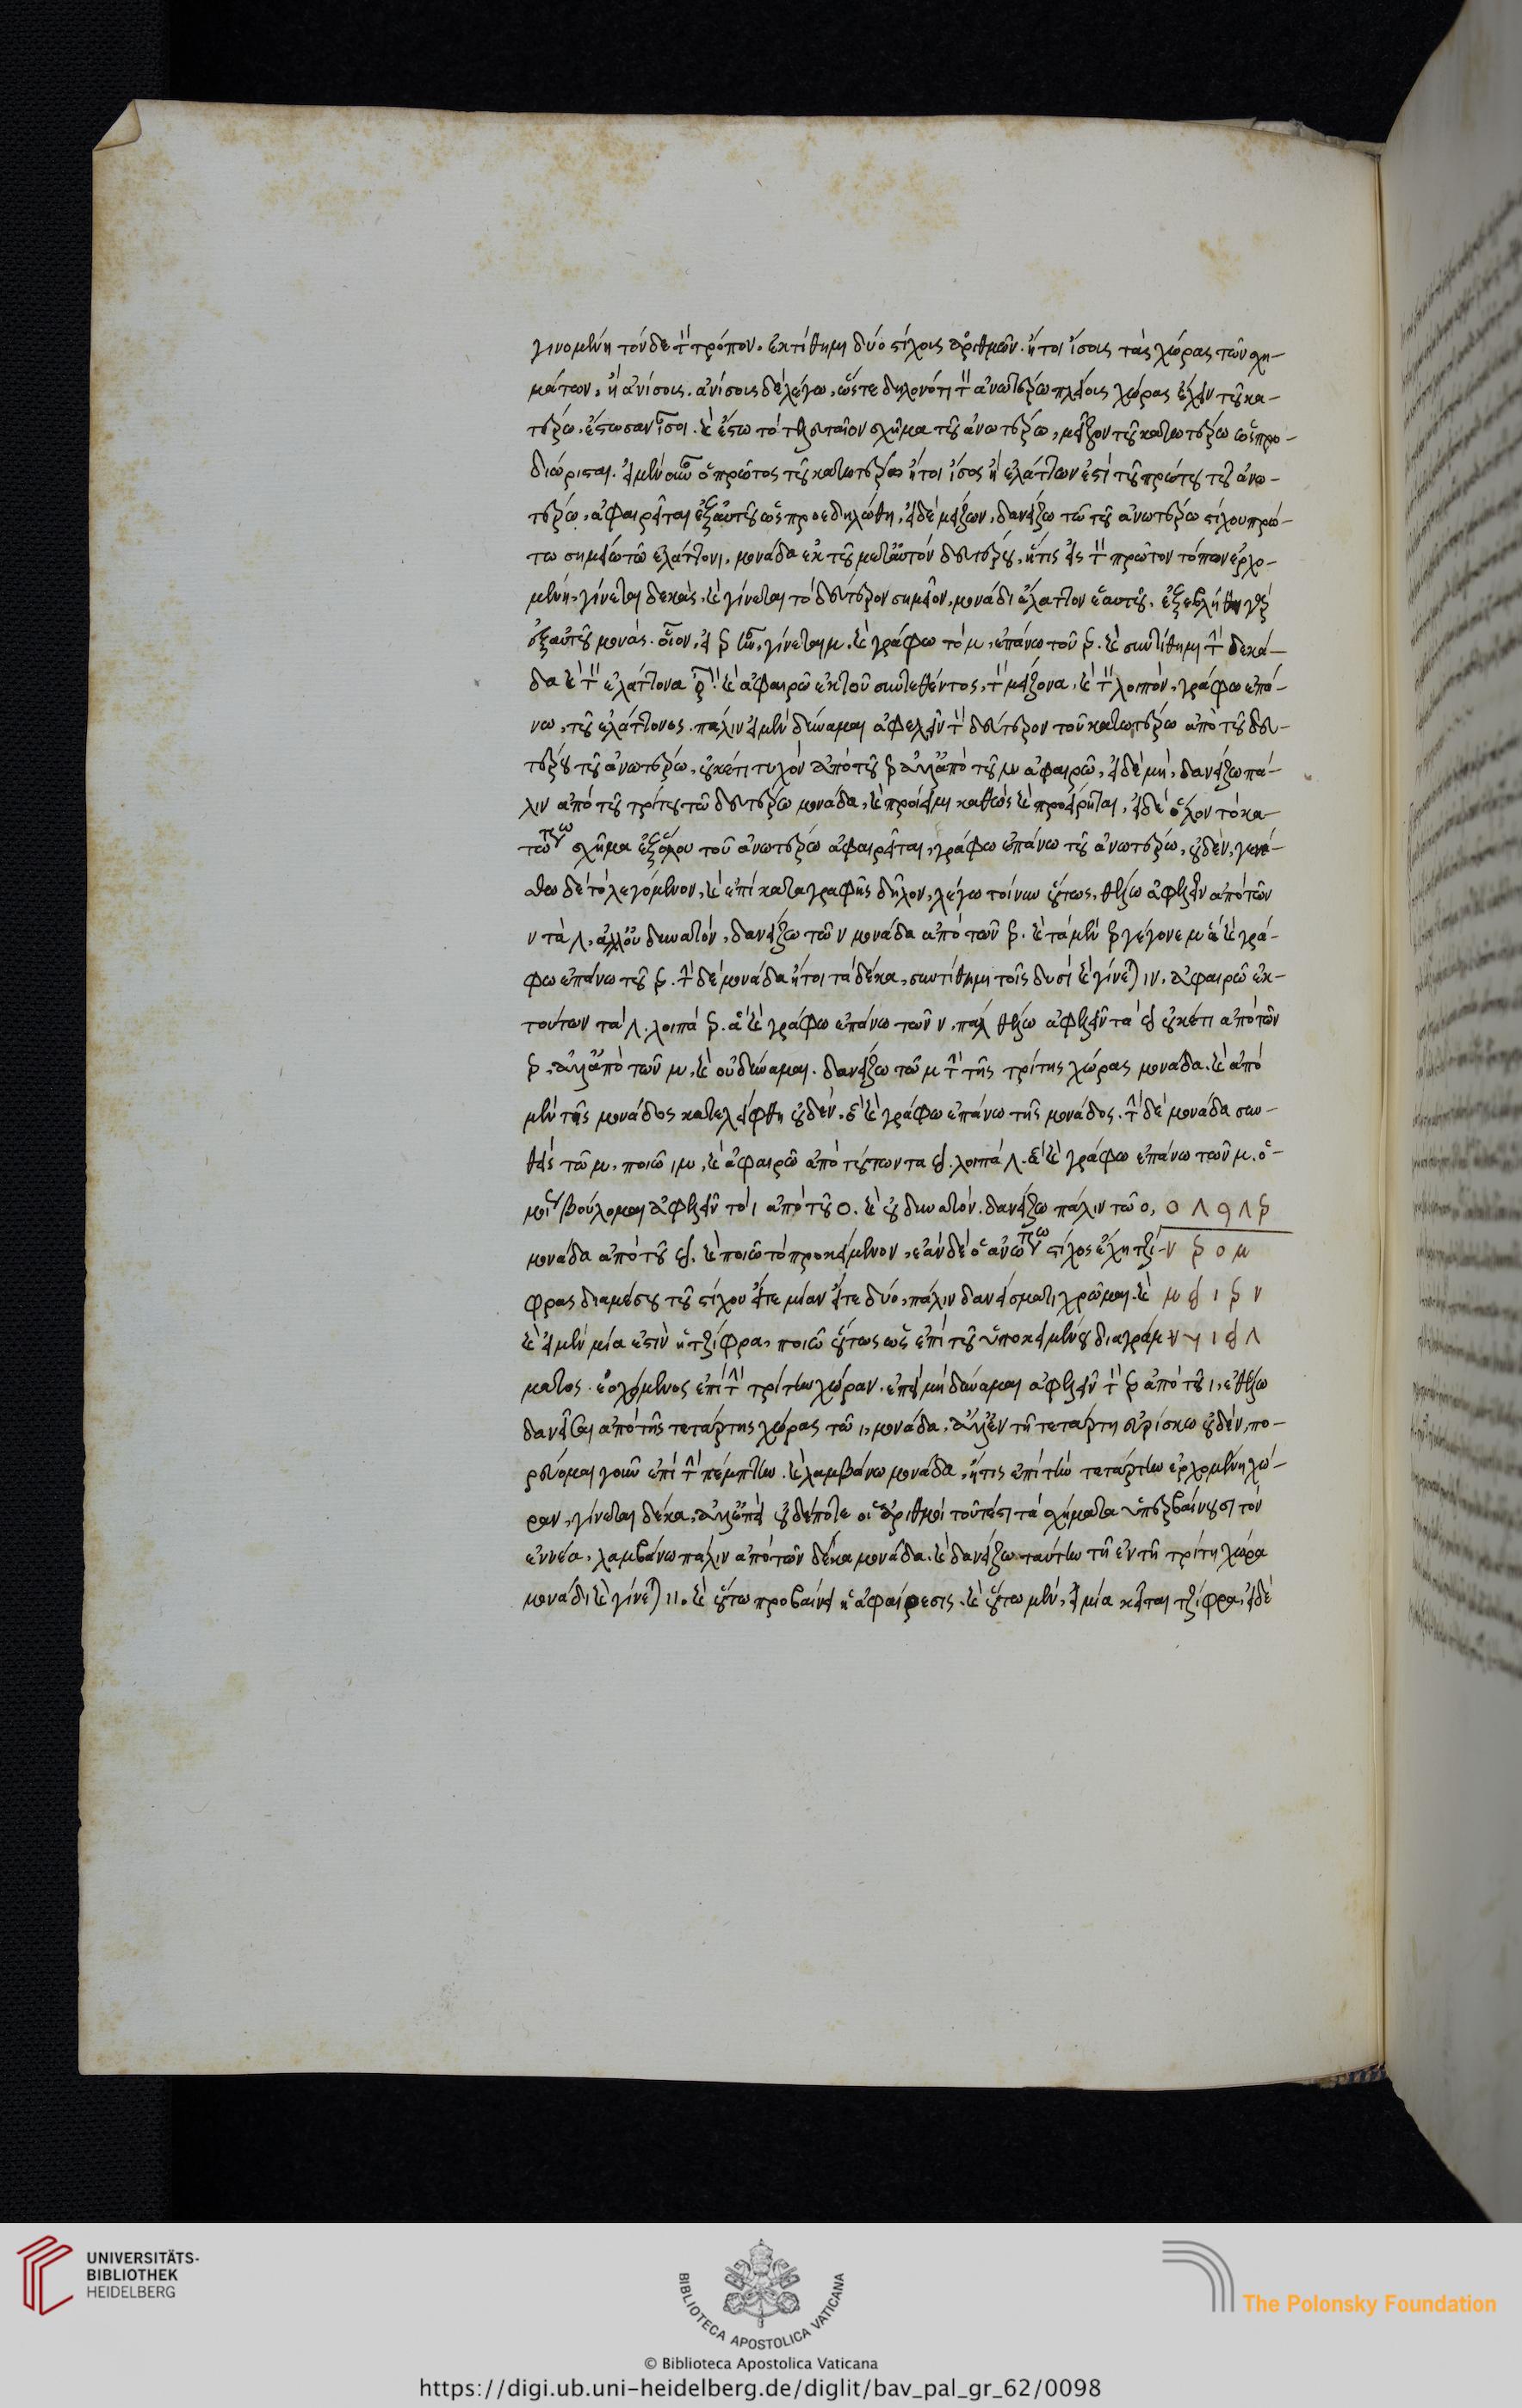 γινομένη τόνδε τὸν τρόπον. ἐκτίθημι δύο στίχους ἀριθμῶν. ἤτοι ἴσους τὰς χώρας τῶν σχη-
μάτων, ἢ ἀνίσους. ἀνίσους δὲ λέγω, ὥστε δηλονότι τὸν ἀνωτέρω πλείους χώρας ἔχειν τοῦ κα-
τέρω. ἔστωσαν ἴσοι. καὶ ἔστω τὸ τελευταῖον σχῆμα τοῦ ἀνωτέρω, μεῖζον τοῦ κατωτέρω ὡς προ-
διώρισται. εἰ μὲν οὖν ὁ πρῶτος τοῦ κατωτέρω ἤτοι ἴσος ἢ ἐλάττων ἐστὶ τοῦ πρώτου τοῦ ἀνω-
τέρω, ἀφαιρεῖται ἐξ αὐτοῦ ὡς προεδηλώθη, εἰ δὲ μείζων, δανείζω τῶ τοῦ ἀνωτέρω στίχου πρώ-
τω σημείω τῶ ἐλάττονι, μονάδα ἐκ τοῦ μετ' αὐτὸν δευτέρου, ἥτις εἰς τὸν πρῶτον τόπον ἐρχο-
μένη, γίνεται δεκάς. καὶ γίνεται τὸ δεύτερον σημεῖον, μονάδι ἔλαττον ἑαυτοῦ. ἐξεβλήθη γὰρ
ἐξ αὐτοῦ μονάς. οἷον, εἰ ϼ ἦν, γίνεται μ. καὶ γράφω τὸ μ, ἐπάνω τοῦ ϼ. καὶ συντίθημι τὴν δεκά-
δα καὶ τὸν ἐλάττονα καὶ ἀφαιρῶ ἐκ τοῦ συντεθέντος, τὸν μείζονα, καὶ τὸν λοιπὸν, γράφω ἐπά-
νω, τοῦ ἐλάττονος. πάλιν εἰ μὲν δύναμαι ἀφελεῖν τὸν δεύτερον τοῦ κατωτέρω ἀπὸ τοῦ δευ-
τέρου τοῦ ἀνωτέρω, οὐκέτι τυχὸν ἀπὸ τοῦ ϼ ἀλλ' ἀπὸ τοῦ μ ἀφαιρῶ, εἰ δὲ μὴ, δανείζω πά-
λιν ἀπὸ τοῦ τρίτου τῶ δευτέρω μονάδα, καὶ πρόειμι καθὼς καὶ προείρηται, εἰ δὲ ὅλον τὸ κα-
τωτέρω σχῆμα ἐξ ὅλου τοῦ ἀνωτέρω ἀφαιρεῖται, γράφω ἐπάνω τοῦ ἀνωτέρω, οὐδέν, γενέ-
σθω δὲ τὸ λεγόμενον, καὶ ἐπὶ καταγραφῆς δῆλον, λέγω τοίνυν οὕτως, θέλω ἀφελεῖν ἀπὸ τῶν
ν τὰ Λ, ἀλλ' οὐ δυνατόν, δανείζω τῶ ν μονάδα ἀπὸ τῶν ϼ. καὶ τὰ μὲν ϼ γέγονε μ ἃ καὶ γρά-
φω ἐπάνω τοῦ ϼ. τὴν δὲ μονάδα ἤτοι τὰ δέκα, συντίθημι τοῖς δυσὶ καὶ γίνεται ιν. ἀφαιρῶ ἐκ
τούτων τὰ Λ. λοιπὰ ϼ. ἃ καὶ γράφω ἐπάνω τῶν ν. πάλιν θέλω ἀφελεῖν τὰ  οὐκέτι ἀπὸ τῶν
ϼ, ἀλλ' ἀπὸ τῶν μ, καὶ οὐ δύναμαι. δανείζω τῶ μ τὴν τῆς τρίτης χώρας μονάδα. καὶ ἀπὸ
μὲν τῆς μονάδος κατελείφθη οὐδέν. ὃ καὶ γράφω ἐπάνω τῆς μονάδος. τὴν δὲ μονάδα συν-
θεὶς τῶ μ, ποιῶ ιμ, καὶ ἀφαιρῶ ἀπὸ τούτων τὰ . λοιπὰ Λ. ἃ καὶ γράφω ἐπάνω τῶν μ. ὁ-
μοίως βούλομαι ἀφελεῖν τὸ ι ἀπὸ τοῦ ο. καὶ οὐ δυνατόν. δανείζω πάλιν τῶ ο, ο Λ 9 Λ ϼ
μονάδα ἀπὸ τοῦ . καὶ ποιῶ τὸ προκείμενον, ἐὰν δὲ ὁ ἀνωτέρω στίχος ἔχη τζί- ν ϼ ο μ
φρας διαμέσου τοῦ στίχου εἴτε μίαν εἴτε δύο, πάλιν δανείσματι χρῶμαι. καὶ
καὶ εἰ μὲν μία ἐστὶν ἡ τζίφρα, ποιῶ οὕτως ὡς ἐπὶ τοῦ ὑποκειμένου διαγράμ-
ματος. ἐρχόμενος ἐπὶ τὴν τρίτην χώραν. ἐπεὶ μὴ δύναμαι ἀφελεῖν τὸν ϼ ἀπὸ τοῦ ι, θέλω
δανεῖσαι ἀπὸ τῆς τετάρτης χώρας τῶ ι, μονάδα. ἀλλ' ἐν τῆ τετάρτη εὑρίσκω οὐδὲν, πο-
ρεύομαι γοῦν ἐπὶ τὴν πέμπτην. καὶ λαμβάνω μονάδα, ἥτις ἐπὶ τὴν τετάρτην ἐρχομένη χώ-
ραν, γίνεται δέκα, ἀλλ' ἐπεὶ οὐδέποτε οἱ ἀριθμοὶ τουτέστι τὰ σχήματα ὑπερβαίνουσι τὸν
ἐννέα, λαμβάνω πάλιν ἀπὸ τῶν δέκα μονάδα. καὶ δανείζω ταύτην τῆ ἐν τῆ τρίτη χώρα
μονάδι καὶ γίνεται ιι. καὶ οὕτω προβαίνει ἡ ἀφαίρεσις. καὶ οὕτω μὲν, εἰ μία κεῖται τζίφρα, εἰ δὲ
UNIVERSITÄTS-
BIBLIOTHEK
HEIDELBERG
BIBLIOTECA APOSTOLICA VATICANA
The Polonsky Foundation
© Biblioteca Apostolica Vaticana
https://digi.ub.uni-heidelberg.de/diglit/bav_pal_gr_62/0098